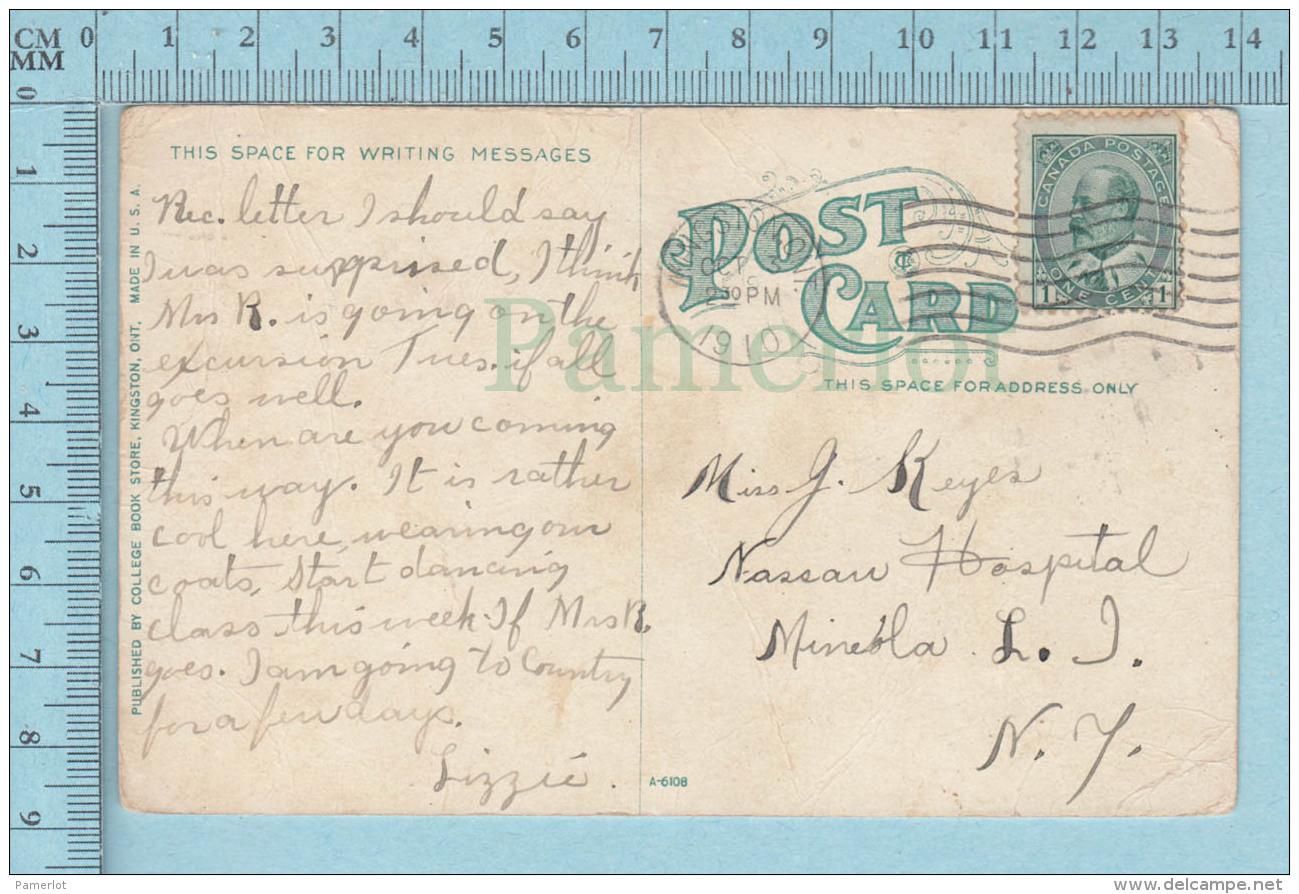 CM 0 1 2 3 4 5 6 7 8 9 10 11 12 13 14
MM
0 1 2 3 4 5 6 7 8 9
THIS SPACE FOR WRITING MESSAGES
Rec. letter I should say
I was surprised, I think
Mrs R. is going on the
excursion Tues. if all
goes well.
When are you coming
this way. It is rather
cool here, wearing our
coats, Start dancing
class this week. If Mrs R.
goes. I am going to Country
for a few days.
Lizzie.
PUBLISHED BY COLLEGE BOOK STORE, KINGSTON, ONT. MADE IN U.S.A.
POST
CARD
KINGSTON
2 30 PM
1910
CANADA POSTAGE
1 ONE CENT 1
THIS SPACE FOR ADDRESS ONLY
Miss J. Keyes
Nassau Hospital
Mineola L. I.
N. Y.
A-6108
Pamerlot
Pamerlot
delcampe.net